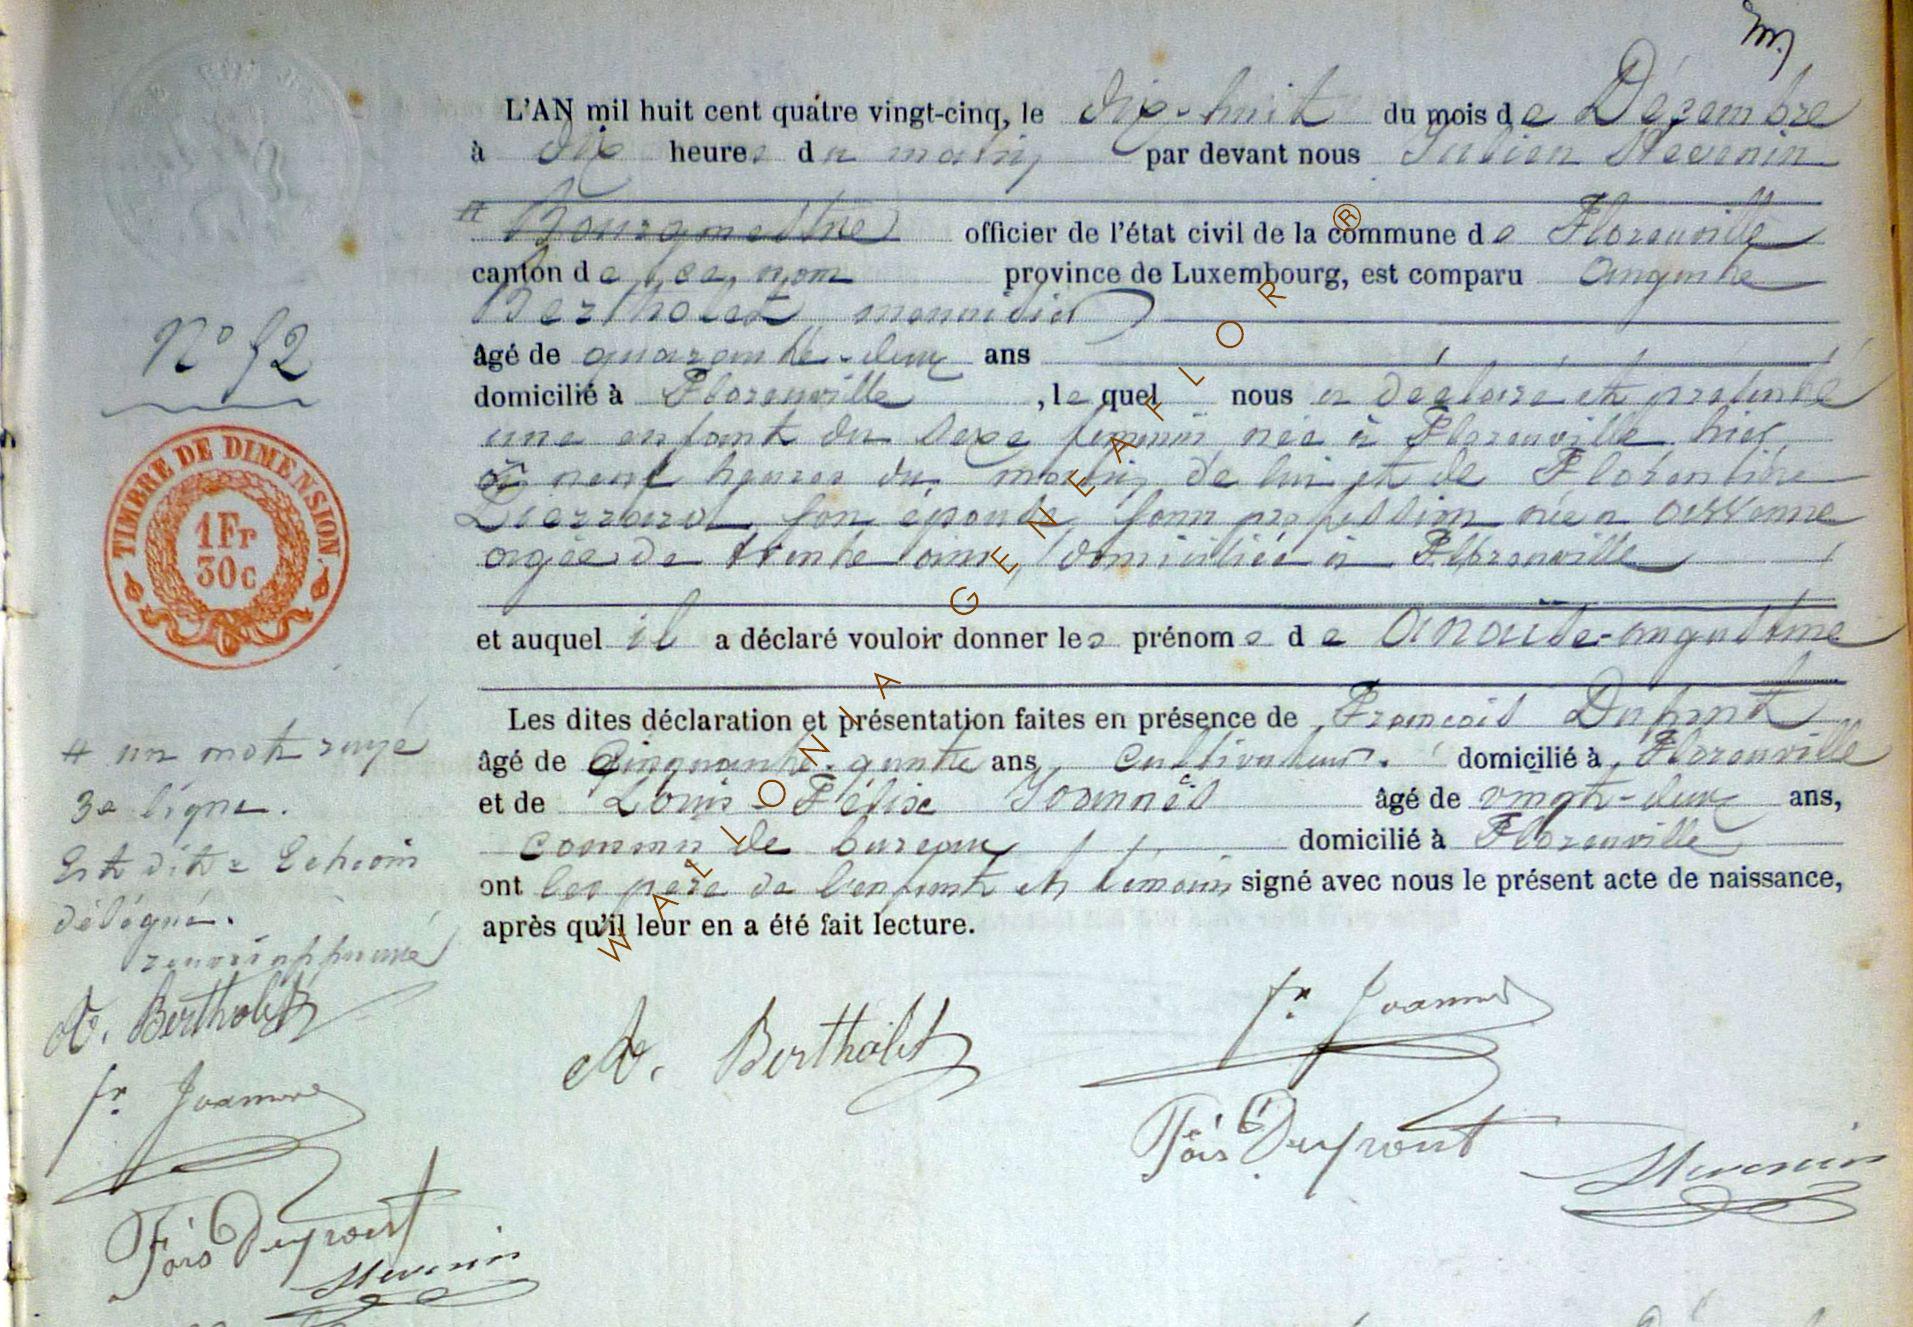 L'AN mil huit cent quatre vingt-cinq, le dix-huit du mois de Décembre
à dix heures du matin par devant nous Julien Stevenin
# Bourgmestre officier de l'état civil de la commune de Florenville
canton de ce nom province de Luxembourg, est comparu auguste
Bertholet menuisier
âgé de quarante-deux ans
domicilié à Florenville, lequel nous a déclaré et présenté
une enfant du sexe féminin née à Florenville hier
à neuf heures du matin de lui et de Florentine
son épouse, sans profession née a
agée de trente ans, domiciliée à Florenville
et auquel il a déclaré vouloir donner les prénoms de anaïse-augustine
Les dites déclaration et présentation faites en présence de François Dupont
âgé de cinquante- ans cultivateur. domicilié à Florenville
et de Louis-Félix Joannès âgé de vingt-deux ans,
commis de bureau domicilié à Florenville
ont les père de l'enfant et témoins signé avec nous le présent acte de naissance,
après qu'il leur en a été fait lecture.
N° 52
TIMBRE DE DIMENSION
1Fr
30c
# un mot rayé
3e ligne.
Est dit = Echevin
délégué.
A. Bertholet
fx Joannes
Fois Dupont
Stevenin
A. Bertholet
fx Joannes
Fois Dupont
Stevenin
WALLONIA GENEAFLOR ®